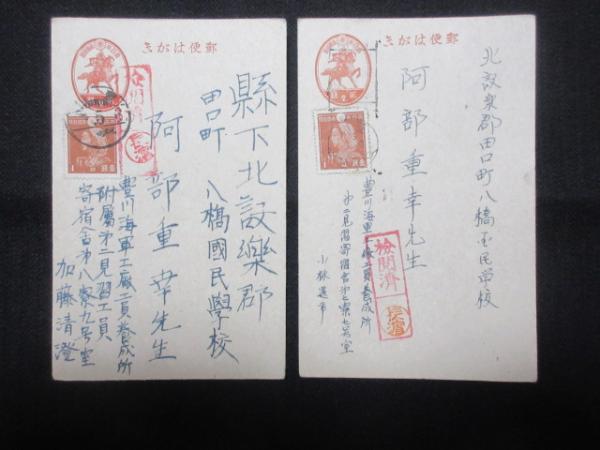 郵便はがき
縣下北設樂郡
田口町 八橋國民學校
阿部重幸先生
豊川海軍工廠工員養成所
附属第二見習工員
寄宿舎第八寮九号室
加藤清澄
1
郵便はがき
北設楽郡田口町八橋国民学校
阿部重幸先生
豊川海軍工廠工員養成所
第二見習寄宿舎第七寮九号室
検閲済
長濱